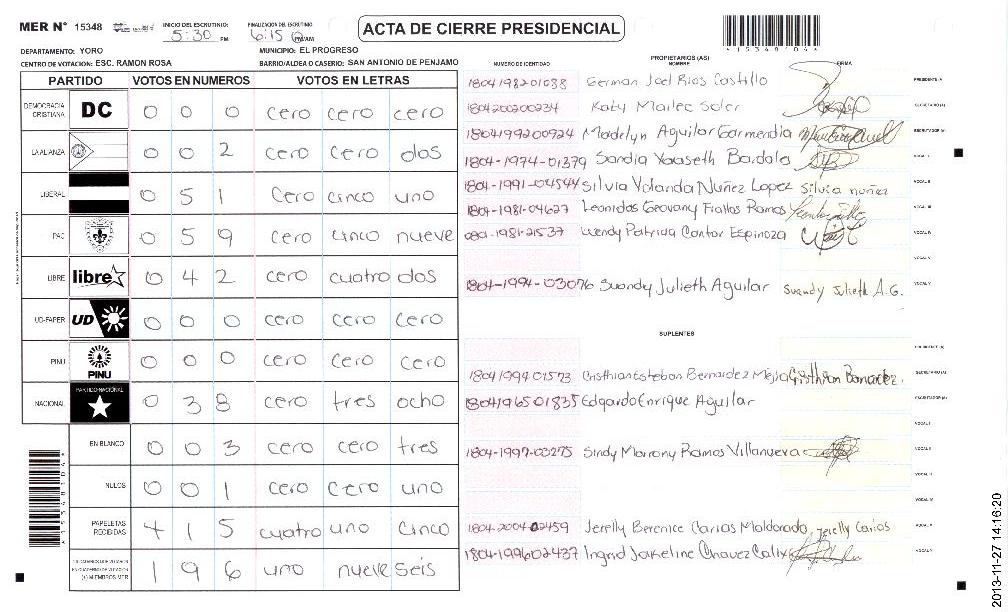 MER N° 15348 INICIO DEL ESCRUTINIO 5:30 PM FINALIZACION DEL ESCRUTINIO 6:15 PM/AM ACTA DE CIERRE PRESIDENCIAL
*15348104*
DEPARTAMENTO: YORO MUNICIPIO: EL PROGRESO
CENTRO DE VOTACION: ESC. RAMON ROSA BARRIO/ALDEA O CASERIO: SAN ANTONIO DE PENJAMO
PARTIDO VOTOS EN NUMEROS VOTOS EN LETRAS
DEMOCRACIA CRISTIANA DC 0 0 0 cero cero cero
LA ALIANZA 0 0 2 cero cero dos
LIBERAL 0 5 1 cero cinco uno
PAC 0 5 9 cero cinco nueve
LIBRE libre 0 4 2 cero cuatro dos
UD-FAPER UD 0 0 0 cero cero cero
PINU PINU 0 0 0 cero cero cero
NACIONAL PARTIDO NACIONAL 0 3 8 cero tres ocho
EN BLANCO 0 0 3 cero cero tres
NULOS 0 0 1 cero cero uno
PAPELETAS RECIBIDAS 4 1 5 cuatro uno cinco
CIUDADANOS QUE VOTARON EN CUADERNO DE VOTACION (+) MIEMBROS MER 1 9 6 uno nueve seis
PROPIETARIOS (AS)
NUMERO DE IDENTIDAD NOMBRE FIRMA
1804198201038 German Joel Rios Castillo PRESIDENTE (A)
180420200234 Katy Mailec Soler SECRETARIO (A)
1804199200924 Madelyn Aguilar Garmendia ESCRUTADOR (A)
1804-1974-01379 Sandia Yaraseth Bardales VOCAL I
1804-1991-04544 Silvia Yolanda Nuñez Lopez Silvia nuñez VOCAL II
1804-1981-04627 Leonidas Geovany Fiallos Ramos VOCAL III
0801-1981-21537 Wendy Patricia Cantor Espinoza VOCAL IV
VOCAL V
1804-1994-03076 Suandy Julieth Aguilar Suandy Julieth A.G. VOCAL V
SUPLENTES
PRESIDENTE (A)
1804199401573 Cristhian Esteban Bernardez Mejia Cristhian Bernardez. SECRETARIO (A)
1804196501835 Edgardo Enrique Aguilar ESCRUTADOR (A)
VOCAL I
1804-1997-03275 Sindy Marrony Ramos Villanueva VOCAL II
VOCAL III
VOCAL IV
1804-2004-02459 Jerelly Berenice Carias Maldonado Jerelly Carias VOCAL V
1804-1996-02437 Ingrid Jakeline Chavez Calix VOCAL V
*15348104*
2013-11-27 14:16:20